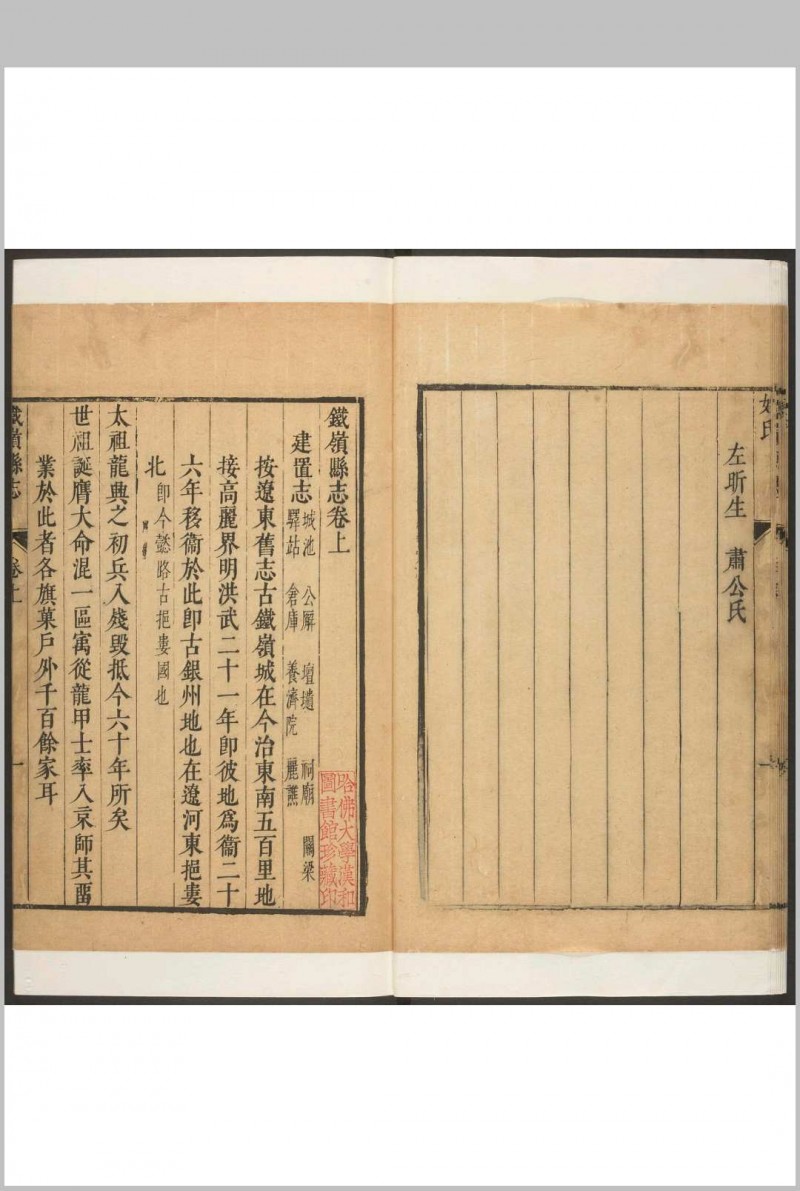 左昕生　肅公氏
鐵嶺縣志卷上
建置志
城池　公廨　壇壝　祠廟　關梁
驛站　倉庫　養濟院　麗譙
按遼東舊志古鐵嶺城在今治東南五百里地
接高麗界明洪武二十一年卽彼地爲衞二十
六年移衞於此卽古銀州地也在遼河東挹婁
北
卽今懿路古挹婁國也
太祖龍興之初兵入殘毀抵今六十年所矣
世祖誕膺大命混一區寓從龍甲士率入京師其畱
業於此者各旗菓戶外千百餘家耳
鐵嶺縣志　卷上　一
哈佛大學漢和
圖書館珍藏印